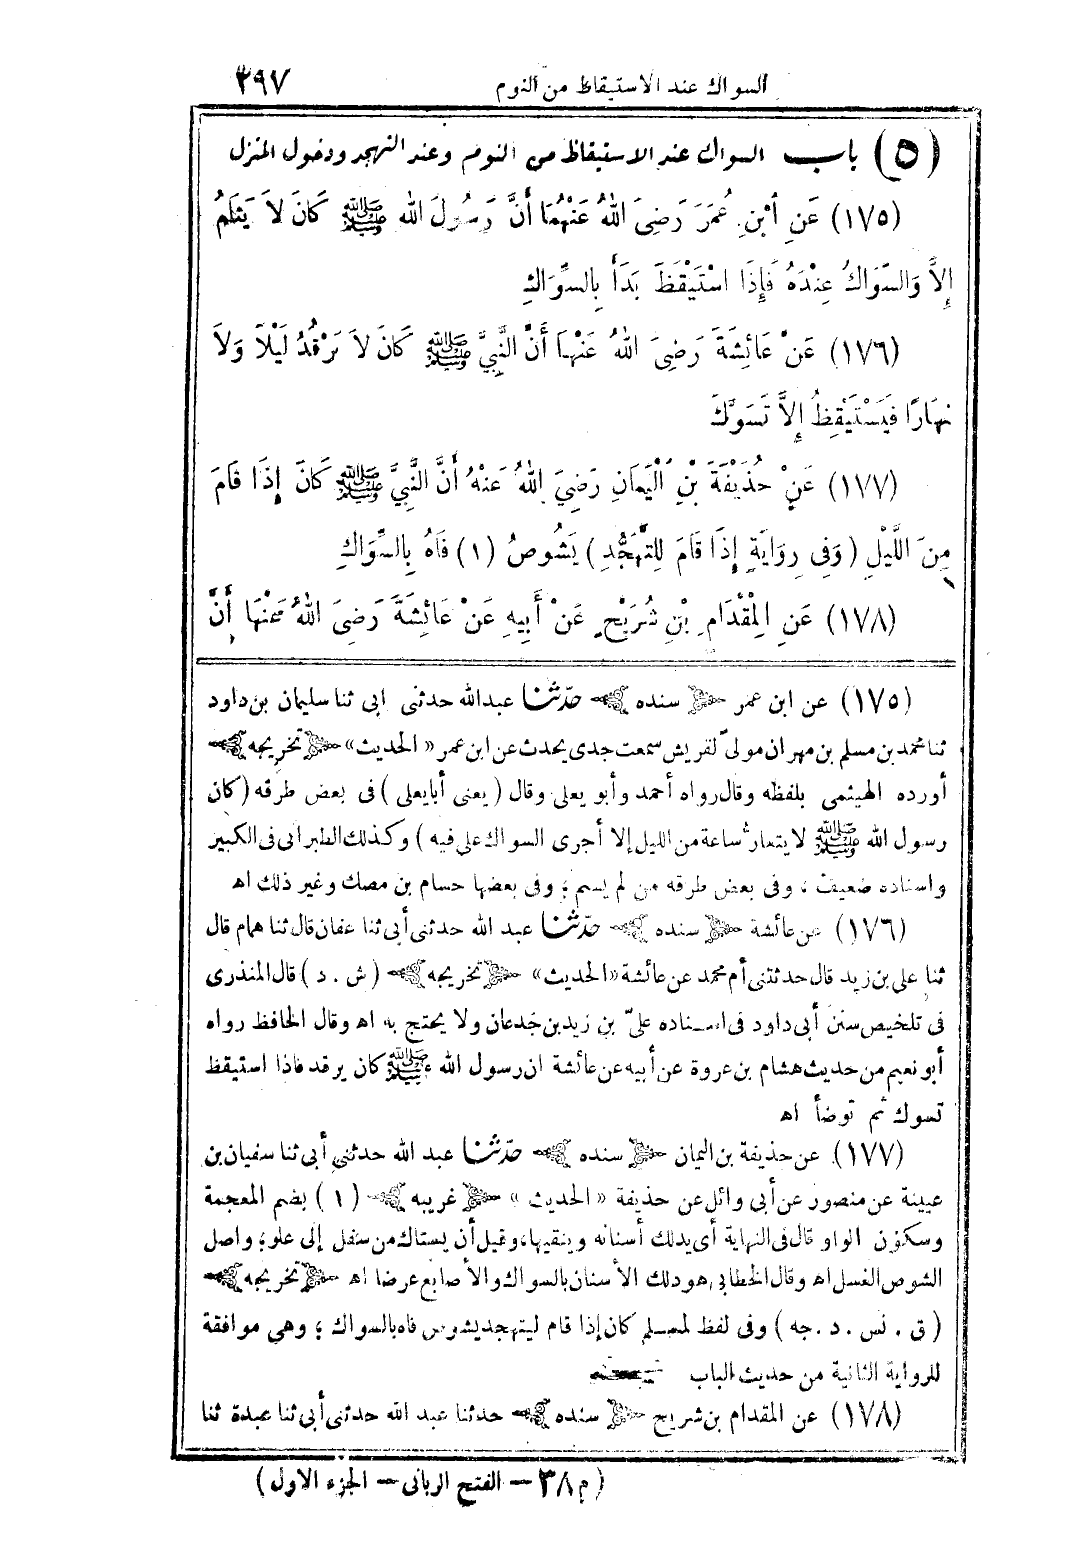 السواك عند الاستيقاظ من النوم ٢٩٧
(٥) باب السواك عند الاستيقاظ من النوم وعند التهجد ودخول المنزل
(١٧٥) عَنِ ابْنِ عُمَرَ رَضِيَ اللهُ عَنْهُمَا أَنَّ رَسُولَ الله ﷺ كَانَ لاَ يَنَامُ
إِلاَّ وَالسِّوَاكُ عِنْدَهُ فَإِذَا اسْتَيْقَظَ بَدَأَ بِالسِّوَاكِ
(١٧٦) عَنْ عَائِشَةَ رَضِيَ اللهُ عَنْهَا أَنَّ النَّبِيَّ ﷺ كَانَ لاَ يَرْقُدُ لَيْلاً وَلاَ
نَهَارًا فَيَسْتَيْقِظُ إِلاَّ تَسَوَّكَ
(١٧٧) عَنْ حُذَيْفَةَ بْنِ الْيَمَانِ رَضِيَ اللهُ عَنْهُ أَنَّ النَّبِيَّ ﷺ كَانَ إِذَا قَامَ
مِنَ اللَّيْلِ (وَفِى رِوَايَةٍ إِذَا قَامَ لِلتَّهَجُّدِ) يَشُوصُ (١) فَاهُ بِالسِّوَاكِ
(١٧٨) عَنِ الْمِقْدَامِ بْنِ شُرَيْحٍ عَنْ أَبِيهِ عَنْ عَائِشَةَ رَضِيَ اللهُ عَنْهَا أَنَّ
(١٧٥) عن ابن عمر سنده حدّثنا عبدالله حدثنى ابى ثنا سليمان بن داود
ثنا محمد بن مسلم بن مهران مولىً لقريش سمعت جدى يحدث عن ابن عمر «الحديث» تخريجه
أورده الهيثمى بلفظه وقال رواه أحمد وأبو يعلى وقال (يعنى أبا يعلى) فى بعض طرقه (كان
رسول الله ﷺ لا يتعارّ ساعة من الليل إلا أجرى السواك على فيه) وكذلك الطبرانى فى الكبير
واسناده ضعيف، وفى بعض طرقه من لم يسم؛ وفى بعضها حسام بن مصك وغير ذلك اه
(١٧٦) عن عائشة سنده حدّثنا عبد الله حدثنى أبى ثنا عفان قال ثنا همام قال
ثنا على بن زيد قال حدثتنى أم محمد عن عائشة «الحديث» تخريجه (ش . د) قال المنذرى
فى تلخيص سنن أبى داود فى اسناده علىّ بن زيد بن جدعان ولا يحتج به اه وقال الحافظ رواه
أبو نعيم من حديث هشام بن عروة عن أبيه عن عائشة ان رسول الله ﷺ كان يرقد فاذا استيقظ
تسوك ثم توضأ اه
(١٧٧) عن حذيفة بن اليمان سنده حدّثنا عبد الله حدثنى أبى ثنا سفيان بن
عيينة عن منصور عن أبى وائل عن حذيفة «الحديث» غريبه (١) بضم المعجمة
وسكون الواو قال فى النهاية أى يدلك أسنانه وينقيها، وقيل أن يستاك من سفل إلى علو؛ واصل
الشوص الغسل اه وقال الخطابى هو دلك الأسنان بالسواك والأصابع عرضا اه تخريجه
(ق . نس . د . جه) وفى لفظ لمسلم كان إذا قام ليتهجد يشوص فاه بالسواك؛ وهى موافقة
للرواية الثانية من حديث الباب
(١٧٨) عن المقدام بن شريح سنده حدثنا عبد الله حدثنى أبى ثنا عبدة ثنا
(م ٣٨ – الفتح الربانى – الجزء الاول)